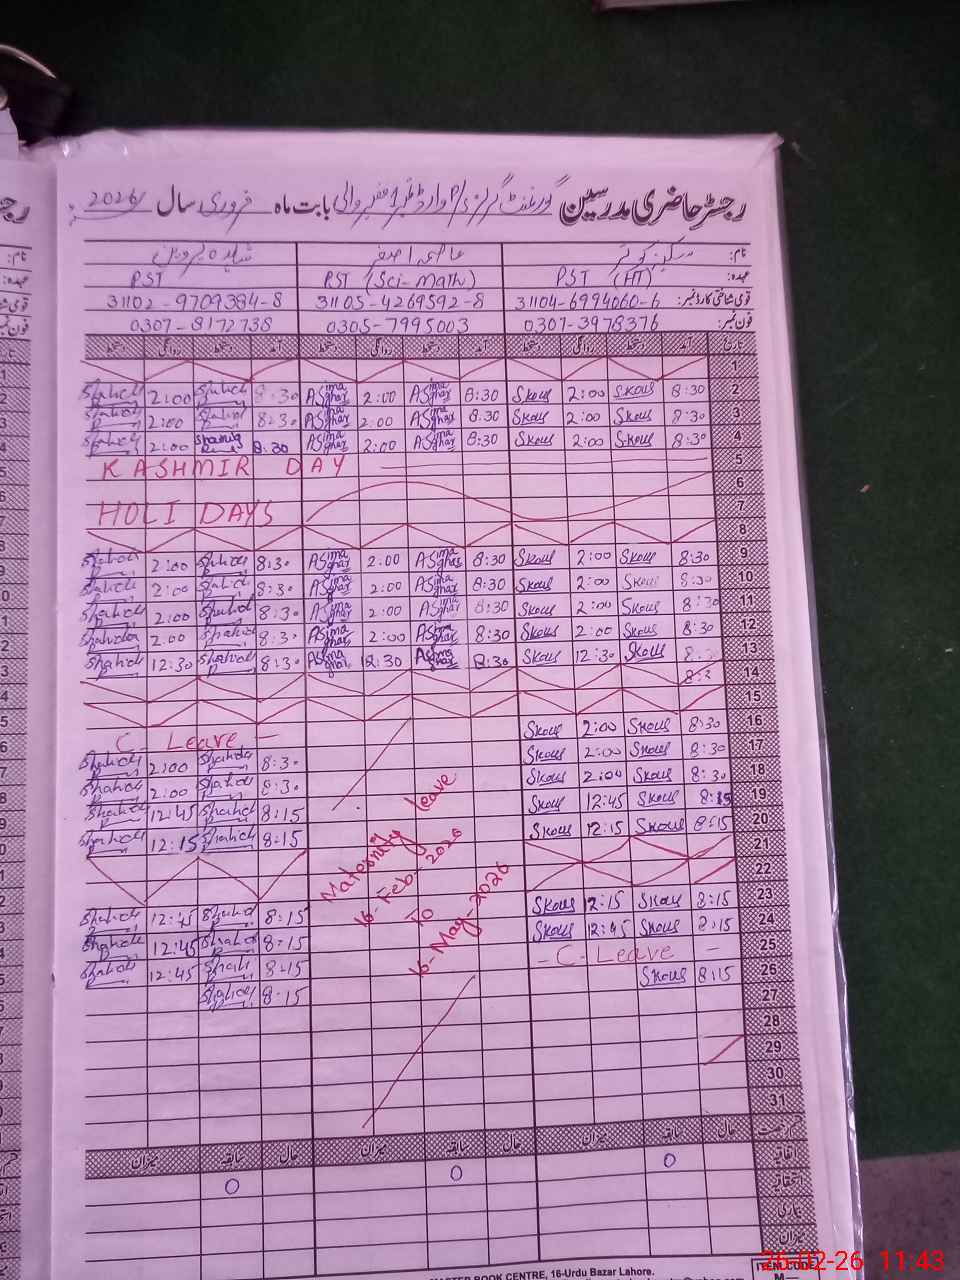 رجسٹر حاضری مدرسین گورنمنٹ گرلز پ/ا وارڈ نمبر 1 والی بابت ماہ فروری سال 2026
نام: سکینہ کوثر عاصمہ اصغر شاہدہ پروین
عہدہ: PST (HT) PST (Sci-Math) PST
قومی شناختی کارڈ نمبر: 31104-6994060-6 31105-4269592-8 31102-9709384-8
فون نمبر: 0307-3978376 0305-7995003 0307-8172738
تاریخ آمد دستخط روانگی دستخط آمد دستخط روانگی دستخط آمد دستخط روانگی دستخط
1
2 8:30 Skous 2:00 Skous 8:30 Asima Ghar 2:00 Asima Ghar 8:30 Shahida 2:00 Shahida
3 8:30 Skous 2:00 Skous 8:30 Asima Ghar 2:00 Asima Ghar 8:30 Shahida 2:00 Shahida
4 8:30 Skous 2:00 Skous 8:30 Asima Ghar 2:00 Asima Ghar 8:30 Shahida 2:00 Shahida
5 KASHMIR DAY
6
7 HOLIDAYS
8
9 8:30 Skous 2:00 Skous 8:30 Asima Ghar 2:00 Asima Ghar 8:30 Shahida 2:00 Shahida
10 8:30 Skous 2:00 Skous 8:30 Asima Ghar 2:00 Asima Ghar 8:30 Shahida 2:00 Shahida
11 8:30 Skous 2:00 Skous 8:30 Asima Ghar 2:00 Asima Ghar 8:30 Shahida 2:00 Shahida
12 8:30 Skous 2:00 Skous 8:30 Asima Ghar 2:00 Asima Ghar 8:30 Shahida 2:00 Shahida
13 Skous 12:30 Skous 8:30 Asima Ghar 12:30 Asima Ghar 8:30 Shahida 12:30 Shahida
14
15
16 8:30 Skous 2:00 Skous C-Leave
17 8:30 Skous 2:00 Skous 8:30 Shahida 2:00 Shahida
18 8:30 Skous 2:00 Skous 8:30 Shahida 2:00 Shahida
19 8:15 Skous 12:45 Skous 8:15 Shahida 12:45 Shahida
20 8:15 Skous 12:15 Skous 8:15 Shahida 12:15 Shahida
Maternity leave
16-Feb-2026
To
16-May-2026
21
22
23 8:15 Skous 12:15 Skous 8:15 Shahida 12:45 Shahida
24 8:15 Skous 12:45 Skous 8:15 Shahida 12:45 Shahida
25 - C-Leave - 8:15 Shahida 12:45 Shahida
26 8:15 Skous 8:15 Shahida
27
28
29
30
31
حال سابقہ میزان حال سابقہ میزان حال سابقہ میزان
اتفاقیہ 0 0 0
میزان
MASTER BOOK CENTRE, 16-Urdu Bazar Lahore.
ITEM CODE
26-02-26 11:43